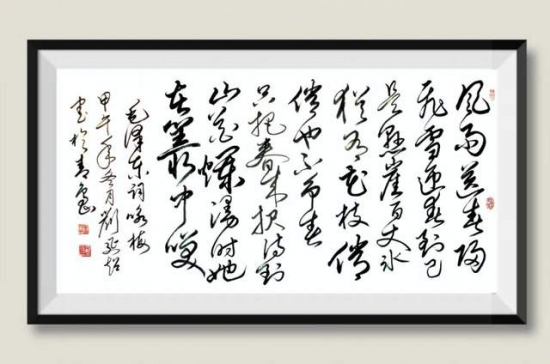 风雨送春归
飞雪迎春到已
是悬崖百丈冰
犹有花枝俏
俏也不争春
只把春来报待到
山花烂漫时她
在丛中笑
毛泽东词咏梅
甲午年冬月刘
书於青岛